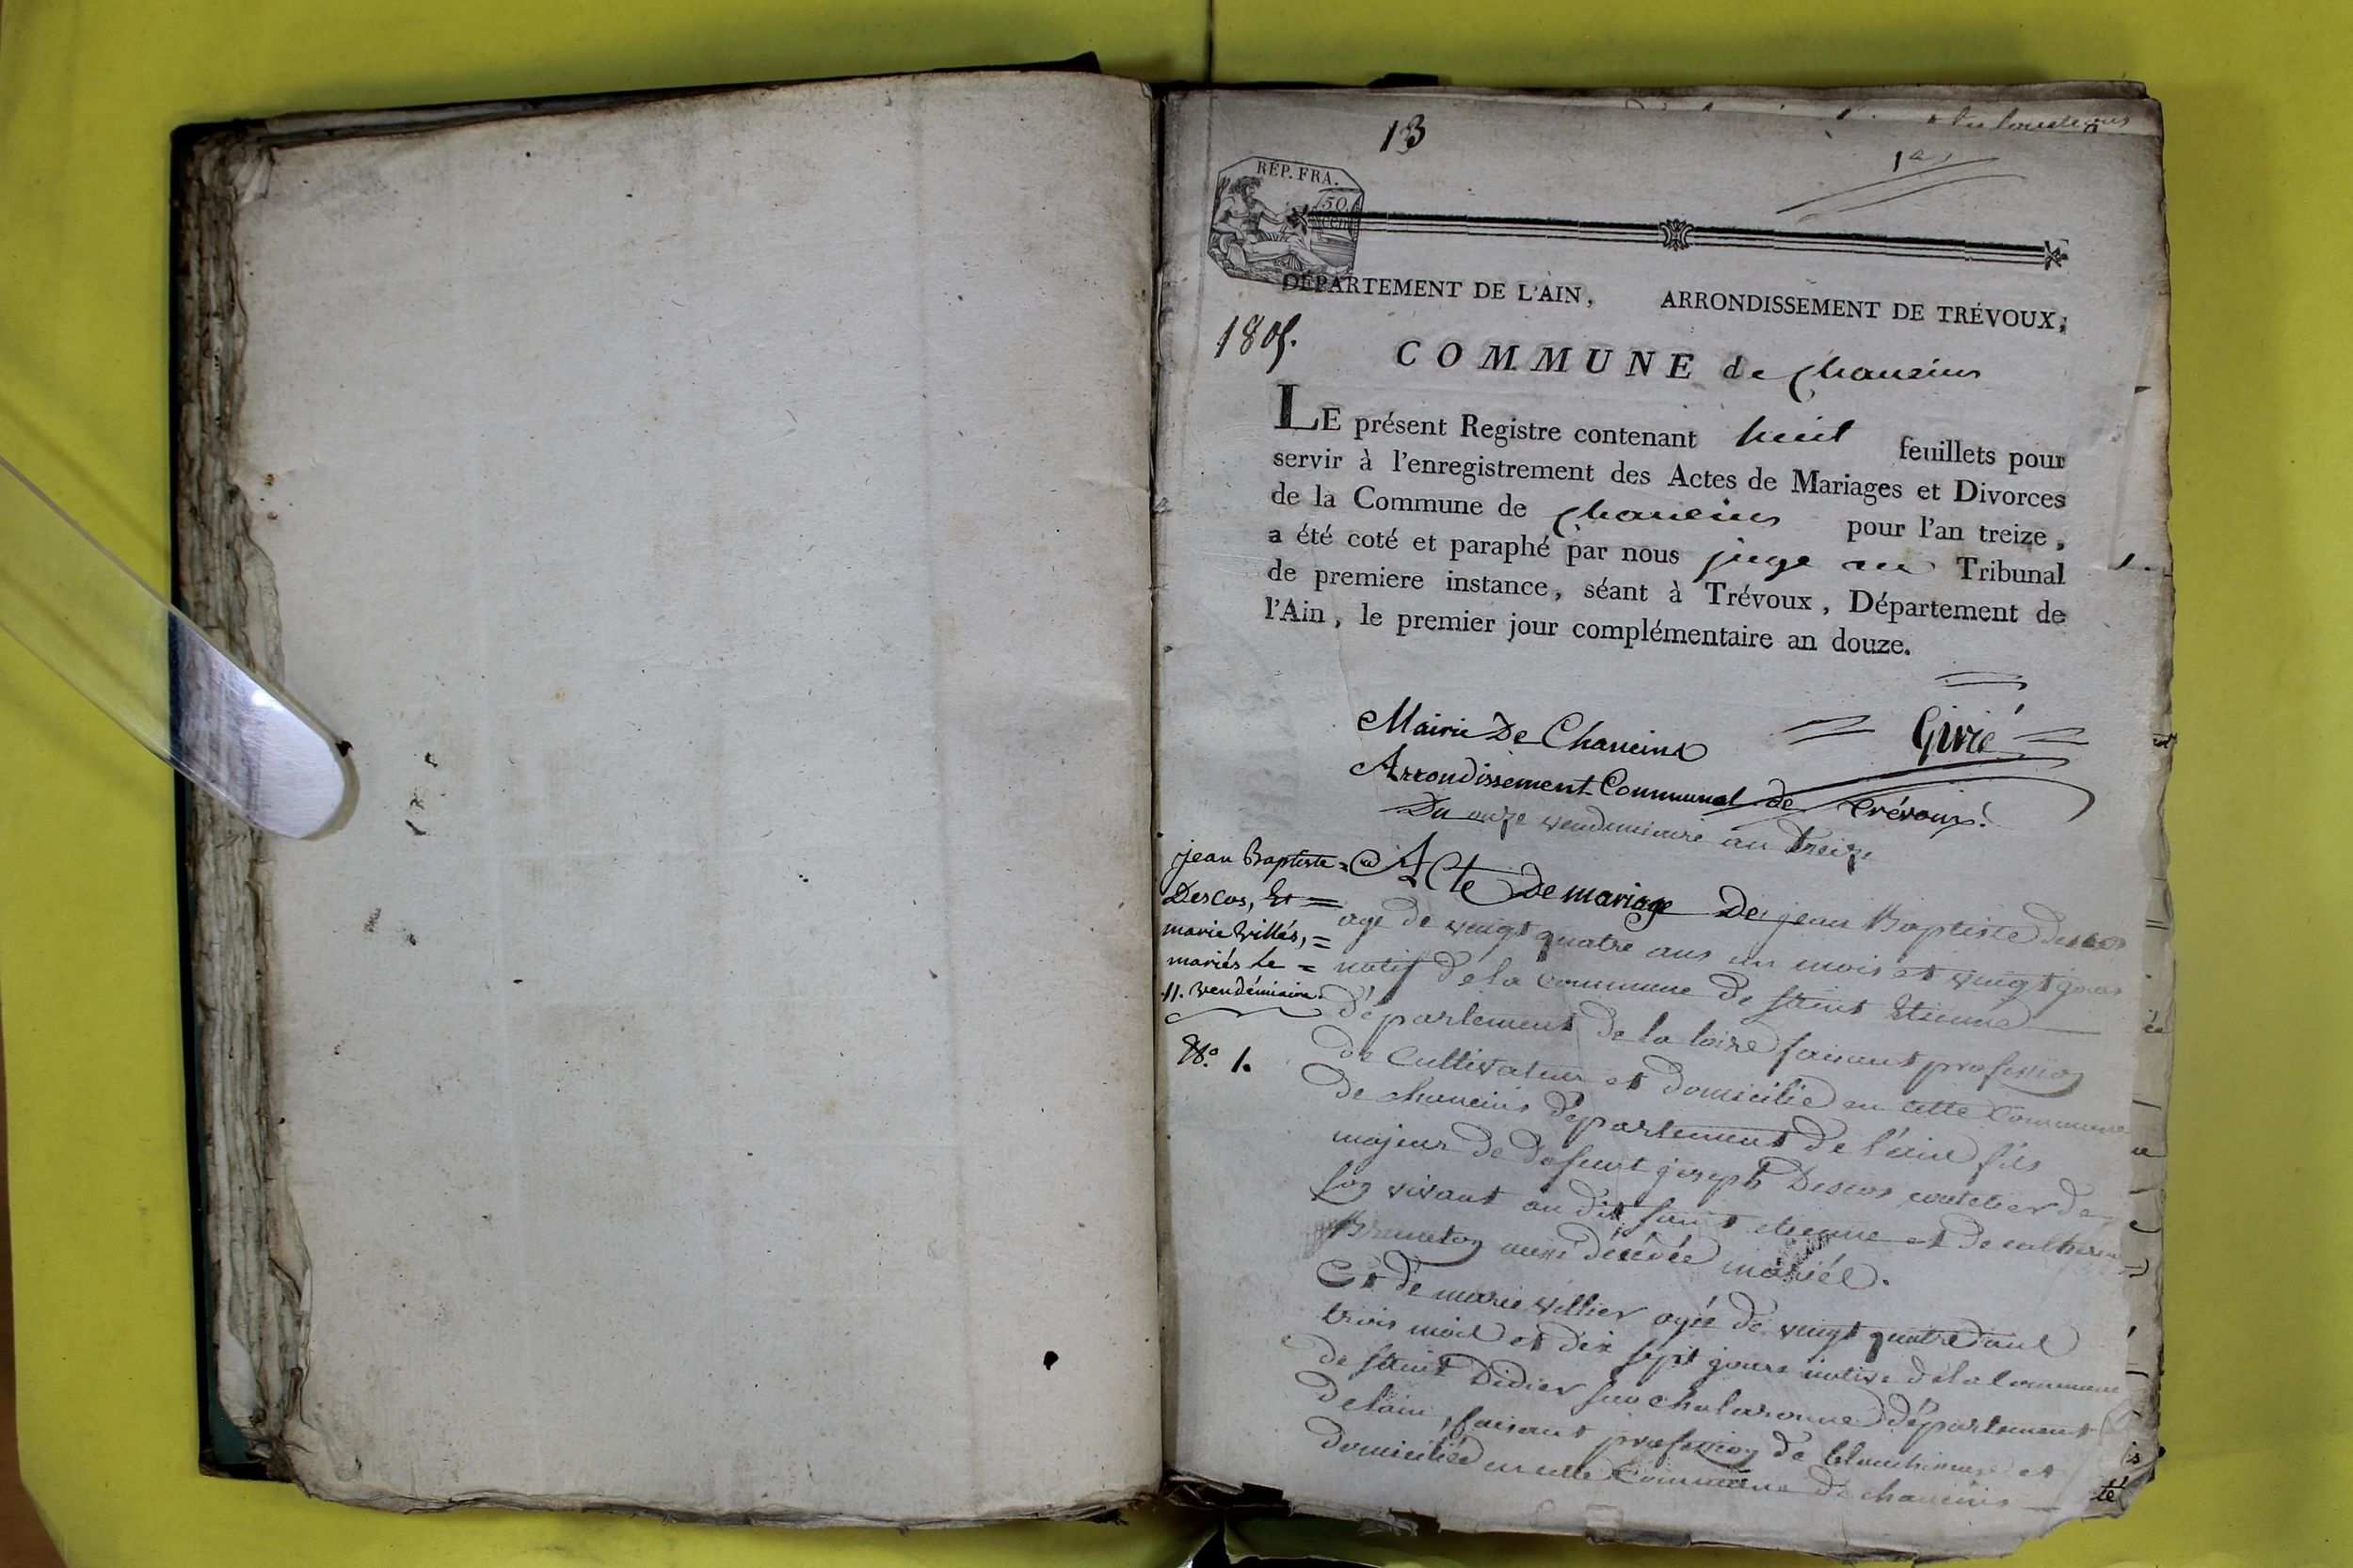 13
1er
RÉP. FRA.
50
CENT
DÉPARTEMENT DE L'AIN, ARRONDISSEMENT DE TRÉVOUX,
1805.
COMMUNE de Chaneins
LE présent Registre contenant huit feuillets pour
servir à l'enregistrement des Actes de Mariages et Divorces
de la Commune de Chaneins pour l'an treize,
a été coté et paraphé par nous juge au Tribunal
de premiere instance, séant à Trévoux, Département de
l'Ain, le premier jour complémentaire an douze.
Givré
Mairie De Chaneins
Arrondissement Communal de Trévoux.
Du onze vendemiaire an treize
jean Baptiste =
Descos, Et =
marie Villés, =
mariés Le =
11. vendémiaire.
No. 1.
Acte De mariage De jean Baptiste descos
age de vingt quatre ans un mois et vingt jours
natif de la commune de saint Etienne
département de la loire faisant profession
de Cultivateur et domicilié en cette Commune
de chaneins département de l'ain fils
majeur de defunt joseph Descos coutelier de
son vivant au dit saint etienne et de catherine
décédée
Et de marie villier agée de vingt quatre ans
trois mois et dix sept jours native de la Commune
de saint Didier sur chalaronne département
de lain, faisant profession de et
domiciliée en cette Commune de chaneins